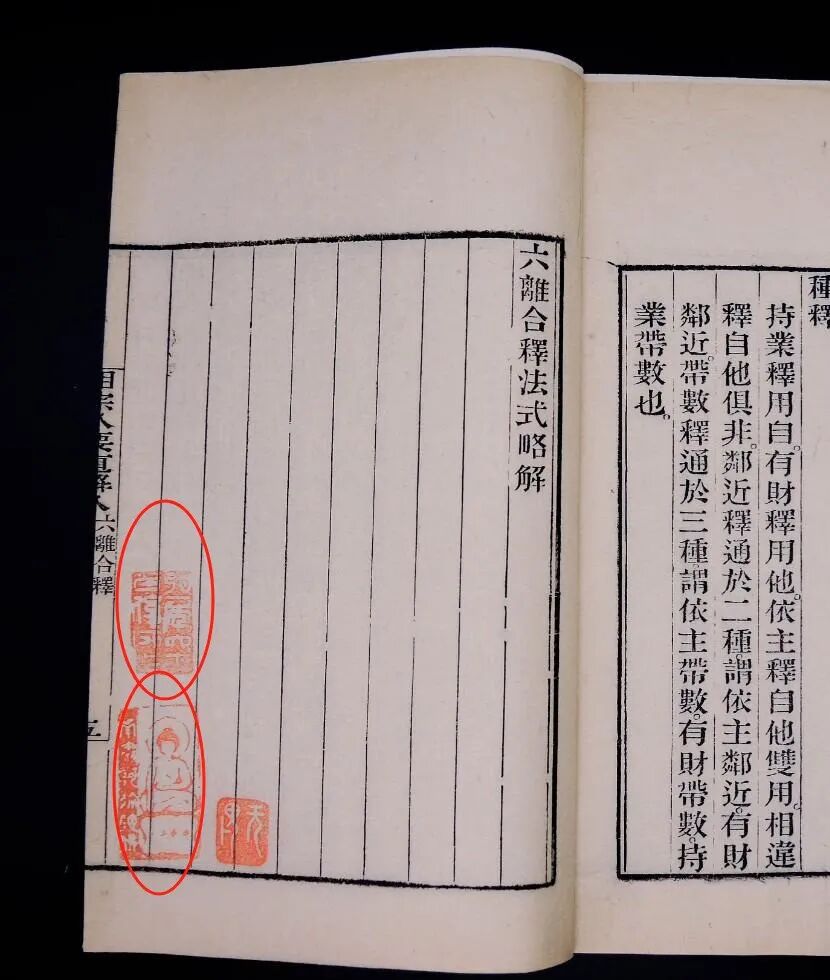 種釋
持業釋用自。有財釋用他。依主釋自他雙用。相違
釋自他俱非。鄰近釋通於二種。謂依主鄰近。有財
鄰近。帶數釋通於三種。謂依主帶數。有財帶數。持
業帶數也。
六離合釋法式略解
相宗八要直解八 六離合釋
五